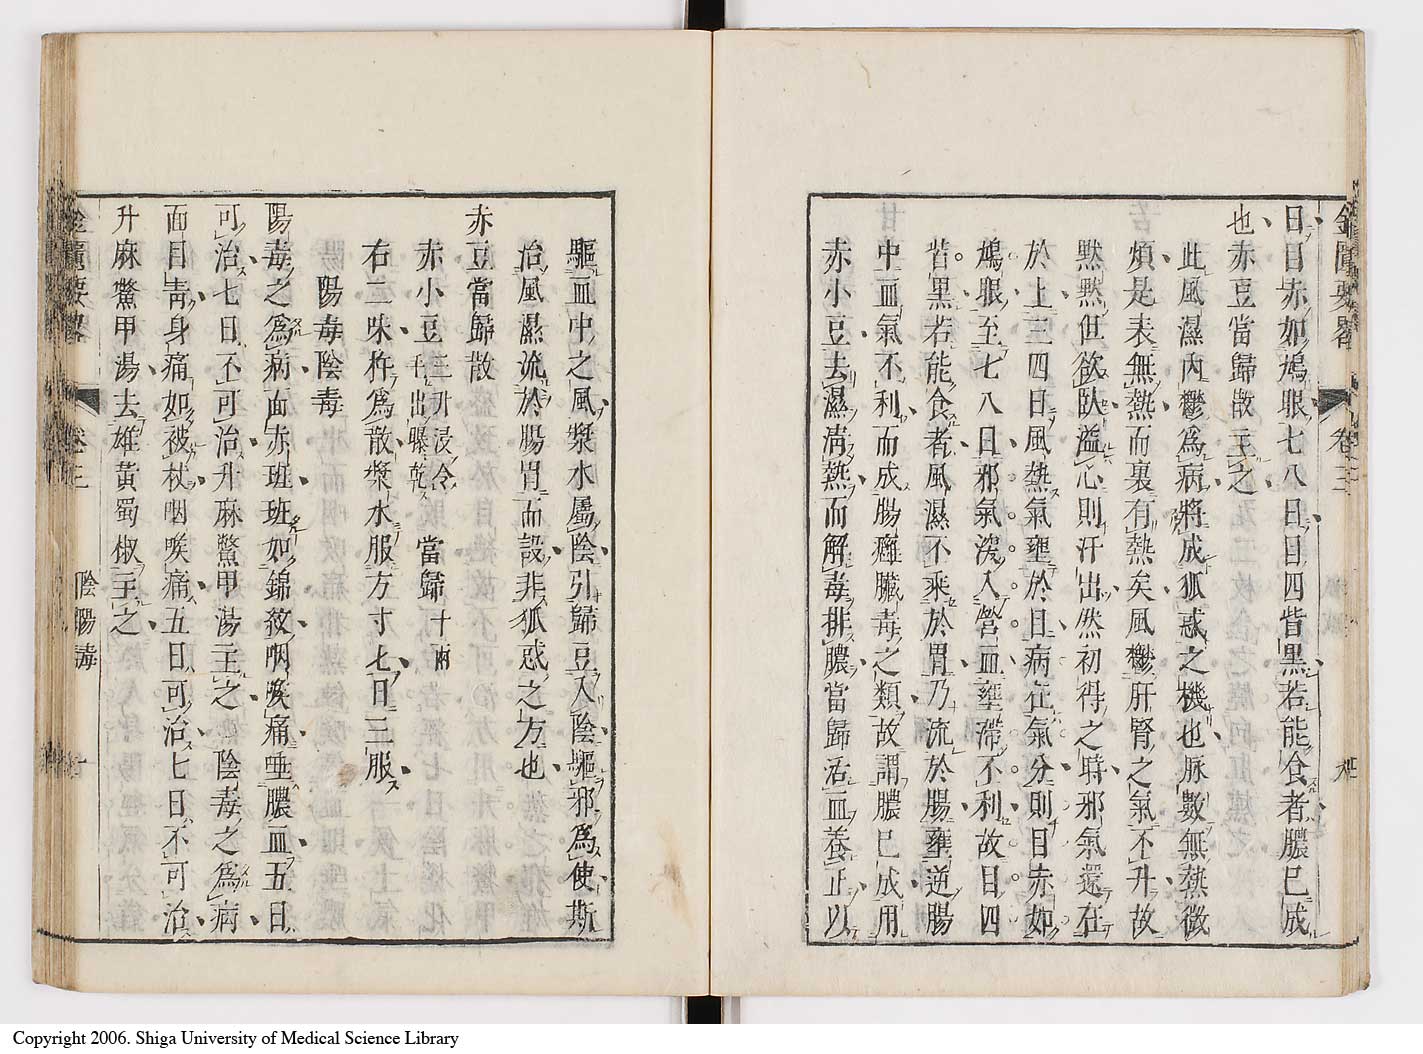 金匱要畧 卷三
日目赤如鳩眼七八日目四眥黑若能食者膿已成
也赤豆當歸散主之
此風濕內鬱爲病將成狐惑之機也脉數無熱微
煩是表無熱而裏有熱矣風鬱肝腎之氣不升故
默默但欲臥溢心則汗出然初得之時邪氣還在
於上三四日風熱氣壅於目病在氣分則目赤如
鳩眼至七八日邪氣深入營血壅滯不利故目四
眥黑若能食者風濕不乘於胃乃流於腸壅逆腸
中血氣不利而成腸癰臟毒之類故謂膿已成用
赤小豆去濕淸熱而解毒排膿當歸活血養正以
驅血中之風漿水屬陰引歸豆入陰驅邪爲使斯
治風濕流於腸胃而設非狐惑之方也
赤豆當歸散
赤小豆 三升浸令芽出曝乾 當歸 十兩
右二味杵爲散漿水服方寸匕日三服
陽毒陰毒
陽毒之爲病面赤班班如錦紋咽喉痛唾膿血五日
可治七日不可治升麻鱉甲湯主之陰毒之爲病
面目靑身痛如被杖咽喉痛五日可治七日不可治
升麻鱉甲湯去雄黃蜀椒主之
金匱要畧 卷三 陰陽毒
Copyright 2006. Shiga University of Medical Science Library